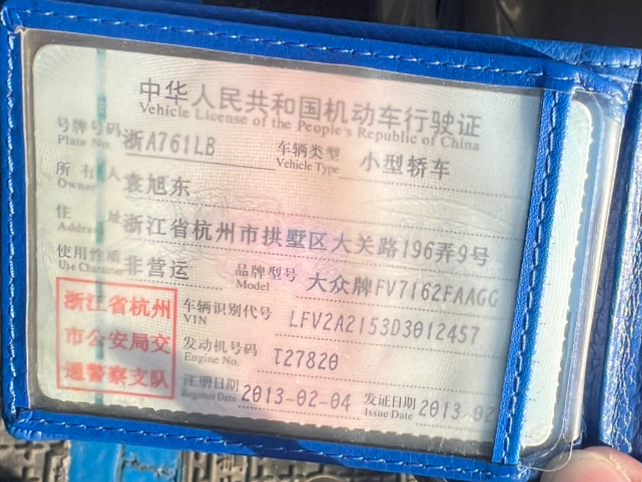 中华人民共和国机动车行驶证
Vehicle License of the People's Republic of China
号牌号码 浙A761LB 车辆类型 小型轿车
Plate No. Vehicle Type
所有人 袁旭东
Owner
住址 浙江省杭州市拱墅区大关路196弄9号
Address
使用性质 非营运 品牌型号 大众牌FV7162FAAGG
Use Character Model
浙江省杭州
市公安局交
通警察支队
车辆识别代号 LFV2A2153D3012457
VIN
发动机号码 T27820
Engine No.
注册日期 2013-02-04 发证日期 2013-02
Register Date Issue Date